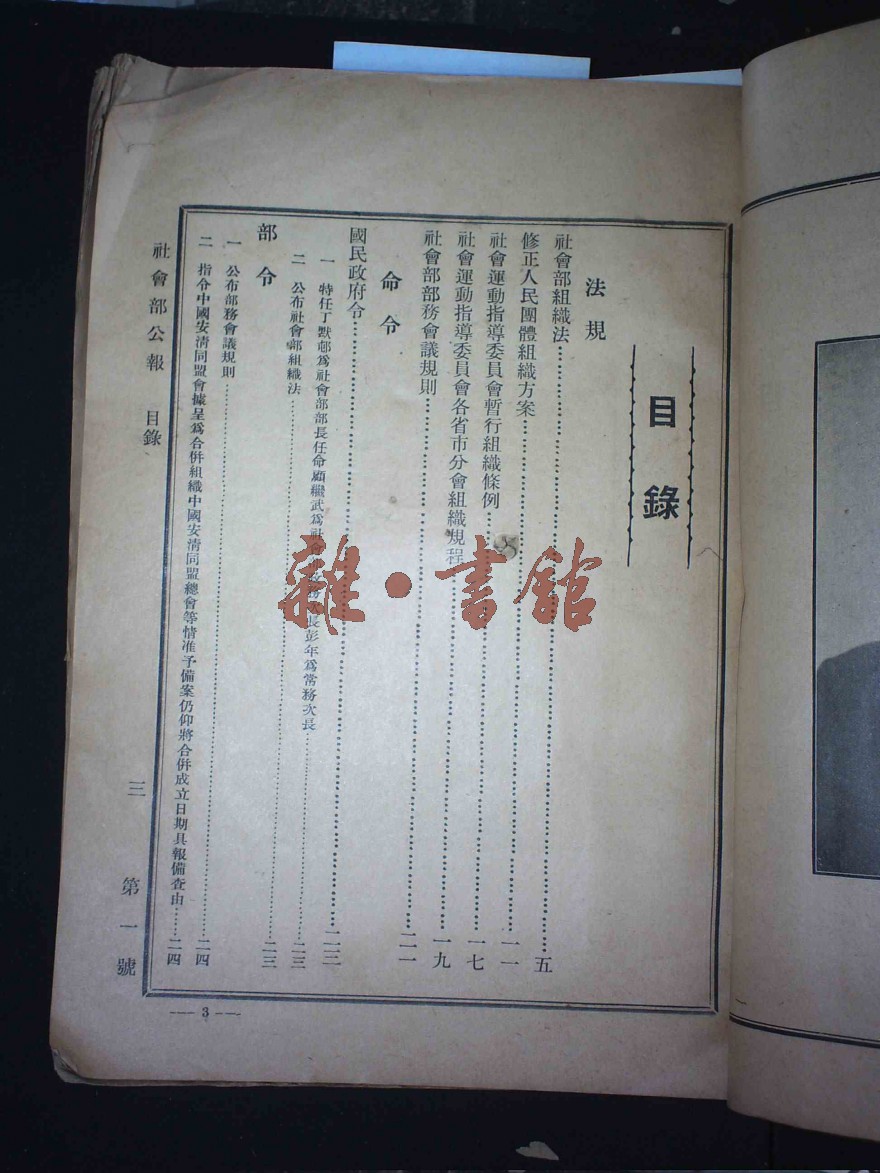 目錄
法規
社會部組織法……五
修正人民團體組織方案……一一
社會運動指導委員會暫行組織條例……一七
社會運動指導委員會各省市分會組織規程……一九
社會部部務會議規則……二一
命令
國民政府令
一 特任丁默邨爲社會部部長任命顧繼武爲社會部政務次長彭年爲常務次長……二三
二 公布社會部組織法……二三
部令
一 公布部務會議規則……二四
二 指令中國安清同盟會據呈爲合併組織中國安清同盟總會等情准予備案仍仰將合併成立日期具報備查由……二四
社會部公報 目錄 三 第一號
— 3 —
雜·書館